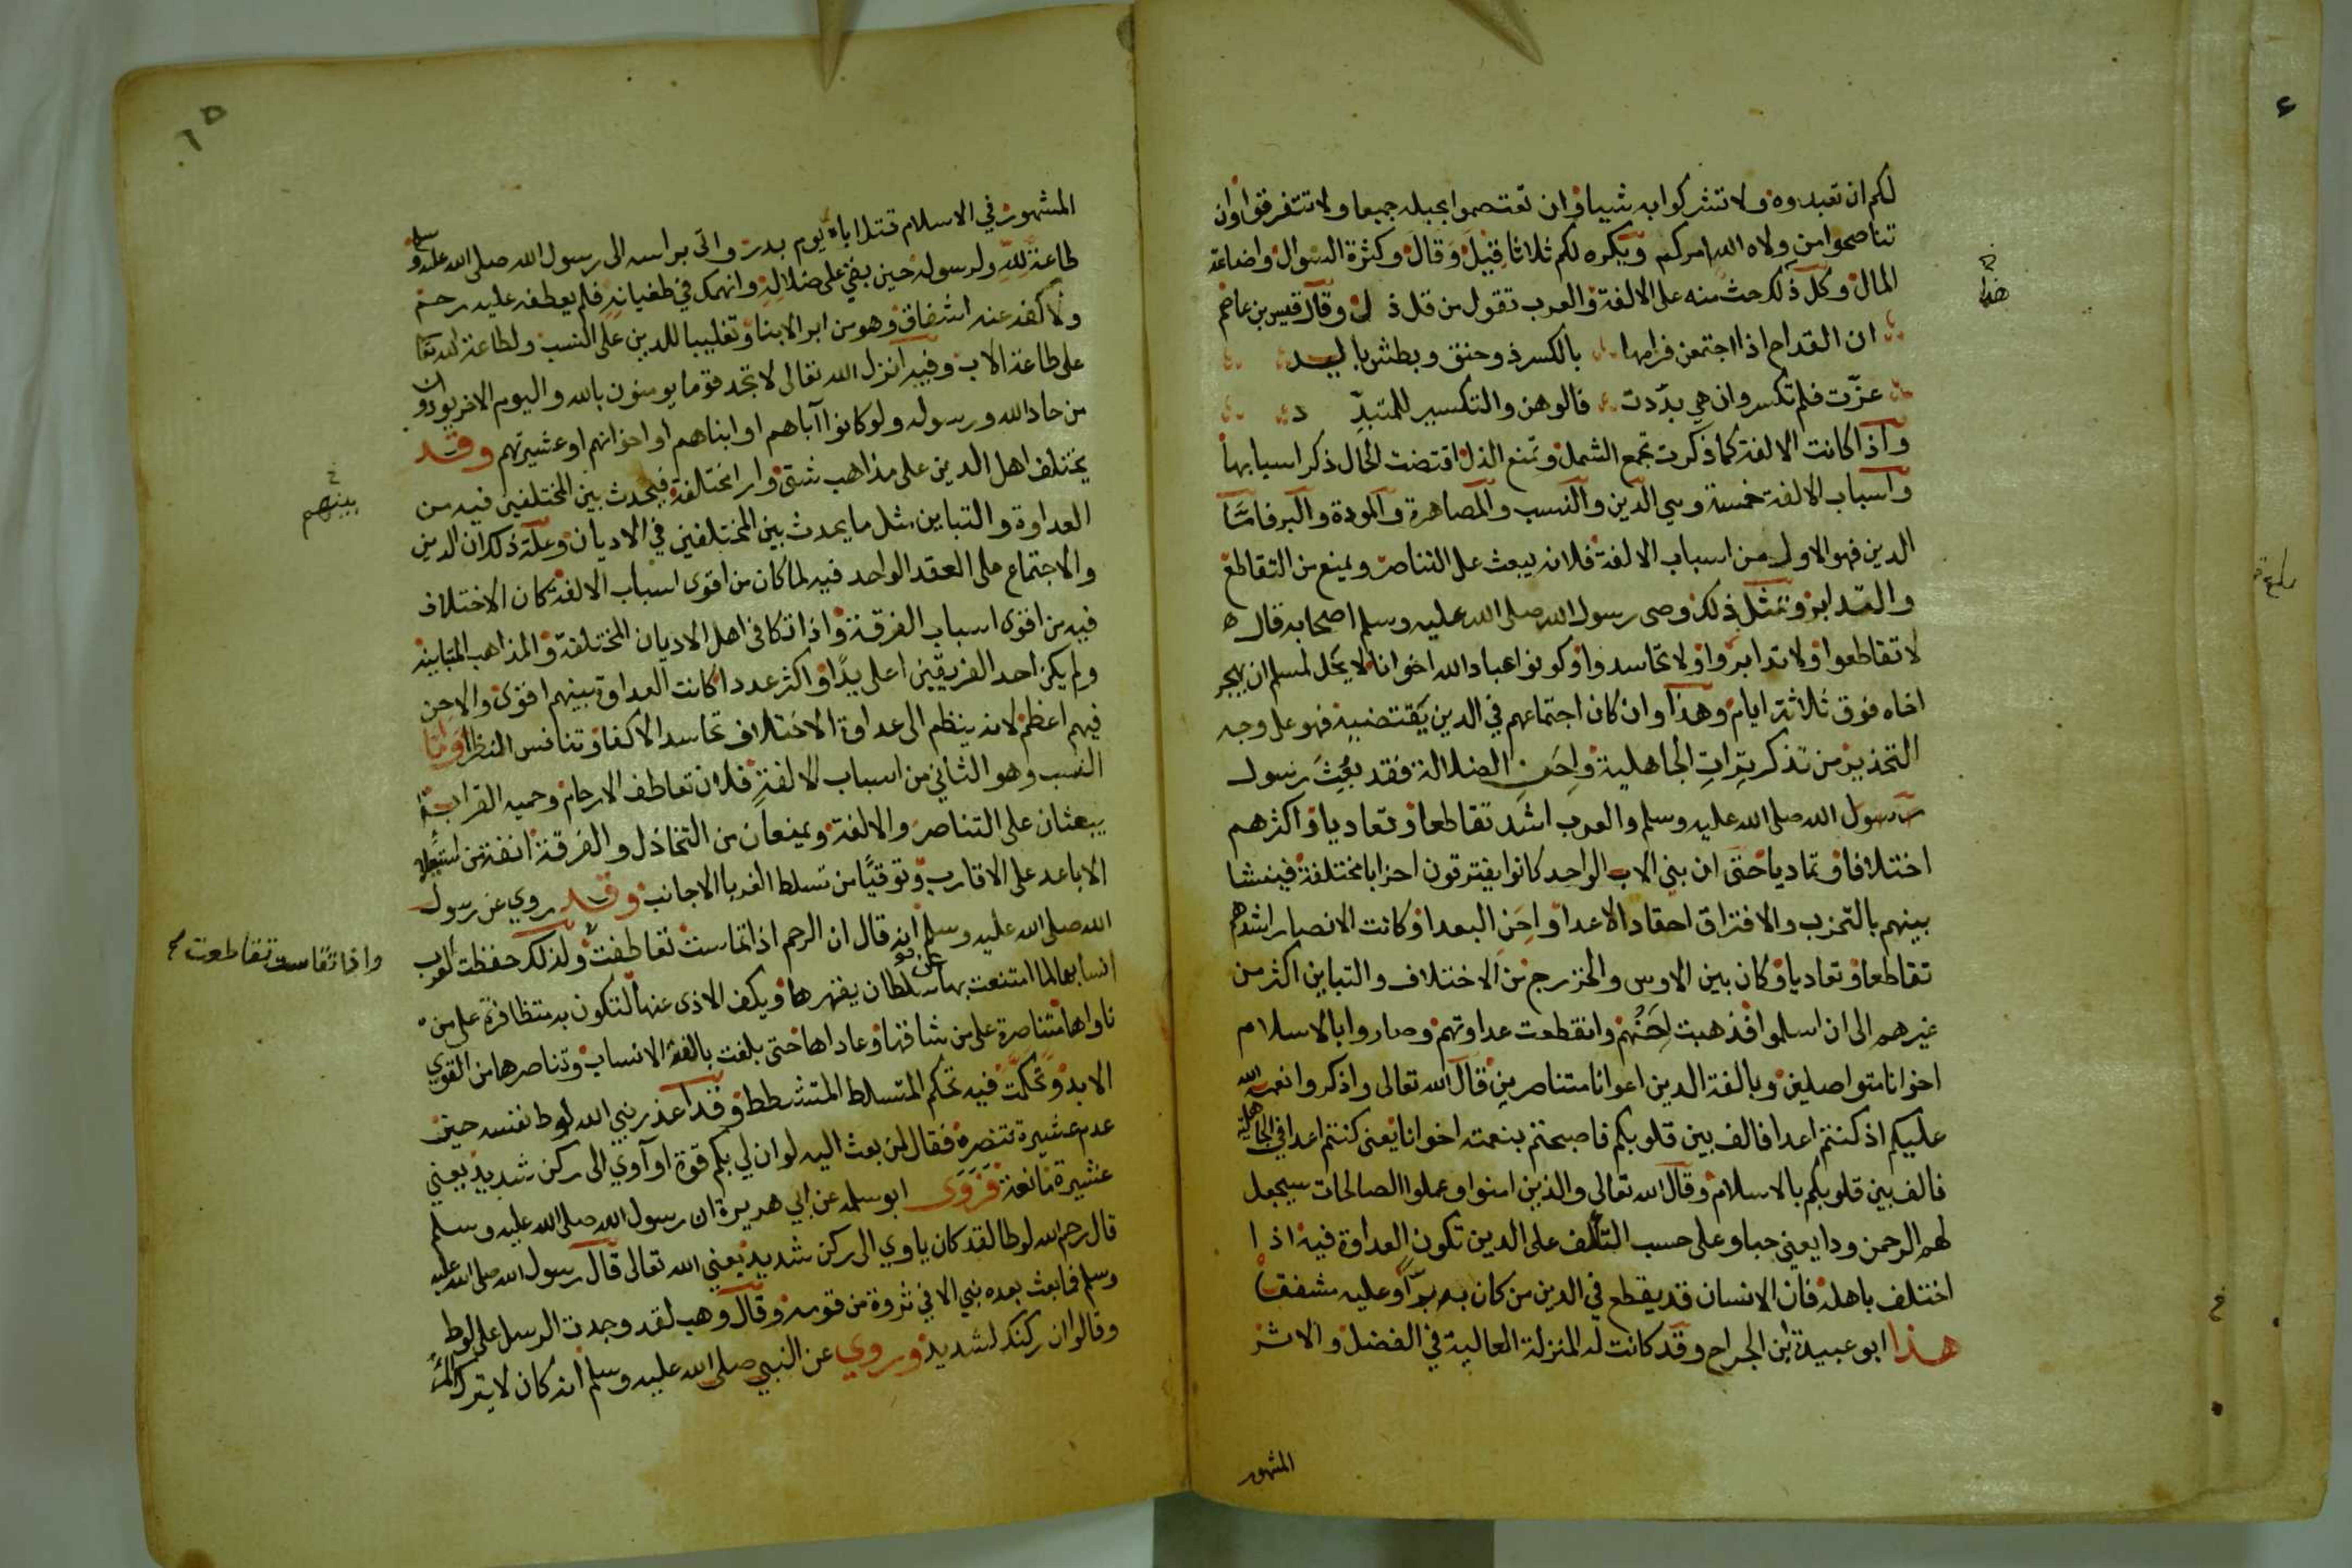 لكم ان تعبدوه ولا تشركوا به شيا وان تعتصموا بحبله جميعا ولا تتفرقوا وان
تناصحوا من ولاه الله امركم ويكره لكم ثلاثا قيل وقال وكثرة السوال واضاعة
المال وكل ذلك حث منه على الالفة والعرب تقول من قل ذل وقال قيس بن عاصم
ان القداح اذا اجتمعن فرامها بالكسر ذو حنق وبطش باليد
عزت فلم تكسر وان هي بددت فالوهن والتكسير للمتبدد
واذا كانت الالفة كما ذكرت تجمع الشمل وتمنع الذل اقتضت الحال ذكر اسبابها
واسباب الالفة خمسة وهي الدين والنسب والمصاهرة والمودة والبر فاما
الدين فهو الاول من اسباب الالفة فلانه يبعث على التناصر ويمنع من التقاطع
والتدابر وبمثل ذلك وصى رسول الله صلى الله عليه وسلم اصحابه فقال
لا تقاطعوا ولا تدابروا ولا تحاسدوا وكونوا عباد الله اخوانا لا يحل لمسلم ان يهجر
اخاه فوق ثلاثة ايام وهذا وان كان اجتماعهم في الدين يقتضيه فهو على وجه
التحذير من تذكر ترات الجاهلية واحن الضلالة فقد بعث رسول
رسول الله صلى الله عليه وسلم والعرب اشد تقاطعا وتعاديا واكثرهم
اختلافا وتماديا حتى ان بني الاب الواحد كانوا يفترقون احزابا مختلفة فينشا
بينهم بالتحزب والافتراق احقاد الاعدا واحن البعدا وكانت الانصار اشدهم
تقاطعا وتعاديا وكان بين الاوس والخزرج من الاختلاف والتباين اكثر من
غيرهم الى ان اسلموا فذهبت احنهم وانقطعت عداوتهم وصاروا بالاسلام
اخوانا متواصلين وبالفة الدين اعوانا متناصرين قال الله تعالى واذكروا نعمة الله
عليكم اذ كنتم اعدا فالف بين قلوبكم فاصبحتم بنعمته اخوانا يعني كنتم اعدا في الجاهلية
فالف بين قلوبكم بالاسلام وقال الله تعالى والذين امنوا وعملوا الصالحات سيجعل
لهم الرحمن ودا يعني حبا وعلى حسب التالف على الدين تكون العداوة فيه اذا
اختلف باهله فان الانسان قد يقطع في الدين من كان به برا وعليه مشفقا
هذا ابو عبيدة ابن الجراح وقد كانت له المنزلة العالية في الفضل والاثر
المشهور
٦٥
المشهور في الاسلام قتل اباه يوم بدر واتى براسه الى رسول الله صلى الله عليه وسلم
طاعة لله ولرسوله حين بقي على ضلاله وانهمك في طغيانه فلم يعطفه عليه رحم
ولا كفه عنه اشفاق وهو من ابر الابنا وتغليبا للدين على النسب ولطاعة الله تعا
على طاعة الاب وفيه انزل الله تعالى لا تجد قوما يومنون بالله واليوم الاخر يوادون
من حاد الله ورسوله ولو كانوا آباهم او ابناهم او اخوانهم او عشيرتهم وقد
يختلف اهل الدين على مذاهب شتى وارا مختلفة فيحدث بين المختلفين فيه من
بينهم
العداوة والتباين مثل ما يحدث بين المختلفين في الاديان وعلة ذلك ان الدين
والاجتماع على العقد الواحد فيه لما كان من اقوى اسباب الالفة كان الاختلاف
فيه من اقوى اسباب الفرقة واذا تكافى اهل الاديان المختلفة والمذاهب المتباينة
ولم يكن احد الفريقين اعلى يدا واكثر عددا كانت العداوة بينهم اقوى والاحن
فيهم اعظم لانه ينظم الى عداوة الاختلاف تحاسد الاكفا وتنافس النظرا واما
النسب وهو الثاني من اسباب الالفة فلان تعاطف الارحام وحمية القرابة
يبعثان على التناصر والالفة ويمنعان من التخاذل والفرقة انفة من استعلا
الاباعد على الاقارب وتوقيا من تسلط الغربا الاجانب وقد روي عن رسول
الله صلى الله عليه وسلم انه قال ان الرحم اذا تماست تعاطفت ولذلك حفظت العرب
واذا تقاست تقاطعت
انسابها لما امتنعت بها عن سلطان يقهرها ويكف الاذى عنها لتكون به متظافرة على من
ناواها متناصرة على من شاقها وعاداها حتى بلغت بالفة الانساب وتناصرها من القوي
الايد وتحكمت فيه تحكم المتسلط المتشطط وقد اعذر نبي الله لوط نفسه حين
عدم عشيرة تنصره فقال لمن بعث اليه لو ان لي بكم قوة او آوي الى ركن شديد يعني
عشيرة مانعة فروى ابو سلمه عن ابي هريرة ان رسول الله صلى الله عليه وسلم
قال رحم الله لوطا لقد كان ياوي الى ركن شديد يعني الله تعالى قال رسول الله صلى الله عليه
وسلم فما بعث بعده نبي الا في ثروة من قومه وقال وهب لقد وجدت الرسل على لوط
وقالوا ان ركنك لشديد وروي عن النبي صلى الله عليه وسلم انه كان لا يترك المر